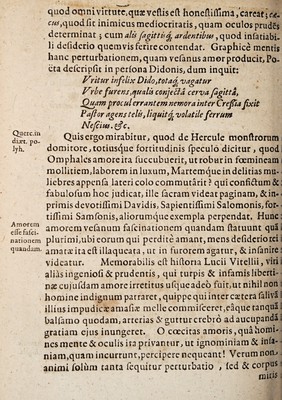 quod omni virtute, quæ vestis est honestissima, careat; cæ-
cus, quod sit inimicus mediocritatis, quam oculus prudẽs
determinat; cum alis sagittisq́, ardentibus, quod insatiabi-
li desiderio quemvis ferire contendat. Graphicè mentis
hanc perturbationem, quam vesanus amor producit, Po-
ëta descripsit in persona Didonis, dum inquit:
Vritur infelix Dido, totaq́, vagatur
Vrbe furens, qualis conjectâ cerva sagittâ,
Quam procul errantem nemora inter Cressia fixit
Pastor agens telis, liquitq́, volatile ferrum
Nescius. &c.
Quere. in
dict. po-
lyh.
Quis ergo mirabitur, quod de Hercule monstrorum
domitore, totiusque fortitudinis speculo dicitur, quod
Omphales amore ita succubuerit, ut robur in fœmineam
mollitiem, laborem in luxum, Martemque in delitias mu-
liebres appensa lateri colo commutârit? qui confictum &
fabulosum hoc judicat, ille sacram videat paginam, & in-
primis devotissimi Davidis, Sapientissimi Salomonis, for-
tissimi Samsonis, aliorumque exempla perpendat. Hunc
Amorem
esse fasci-
nationem
quandam.
amorem vesanum fascinationem quandam statuunt quã
plurimi, ubi eorum qui perditè amant, mens desiderio rei
amatæ ita est illaqueata, ut in furorem agatur, & insanire
videatur. Memorabilis est historia Lucii Vitellii, viri
aliàs ingeniosi & prudentis, qui turpis & infamis liberti-
næ cujusdam amore irretitus usque adeò fuit, ut nihil non
homine indignum patraret, quippe qui inter cætera salivã
illius impudicæ amasiæ melle commisceret, eâque tanquã
balsamo quodam, arterias & guttur crebrò ad aucupandã
gratiam ejus inungeret. O cœcitas amoris, quâ homi-
nes mente & oculis ita privantur, ut ignominiam & insa-
niam, quam incurrunt, percipere nequeant! Verum non
animi solùm tanta sequitur perturbatio, sed & corpus
mitis